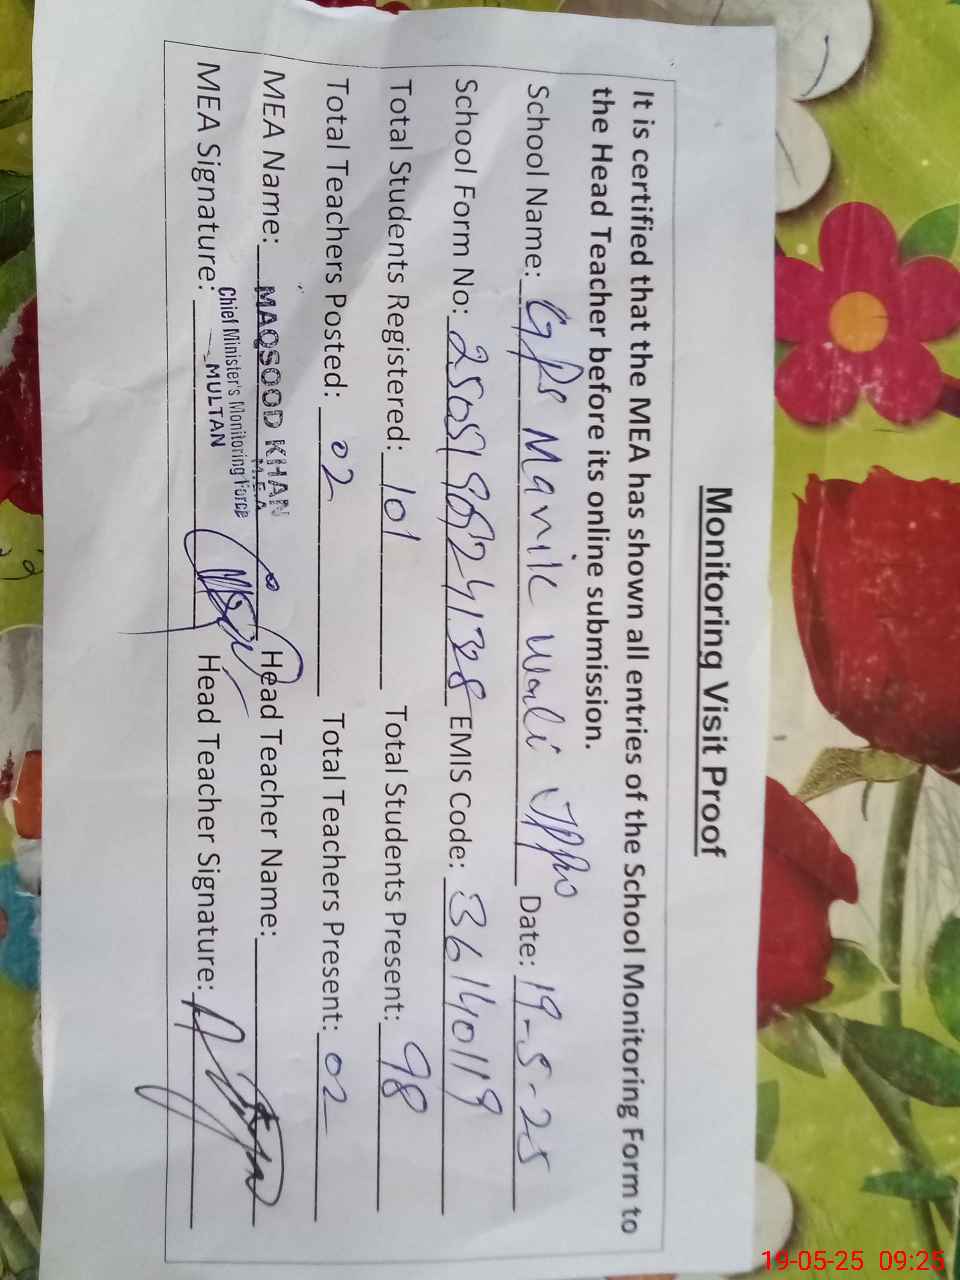 Monitoring Visit Proof
It is certified that the MEA has shown all entries of the School Monitoring Form to
the Head Teacher before its online submission.
School Name: GPS Manik Wali JPPW Date: 19-5-25
School Form No: EMIS Code: 36140119
Total Students Registered: 101 Total Students Present: 98
Total Teachers Posted: 02 Total Teachers Present: 02
MEA Name: MAQSOOD KHAN Head Teacher Name:
M.E.A
Chief Minister's Monitoring Force
MULTAN
MEA Signature: Head Teacher Signature:
19-05-25 09:25